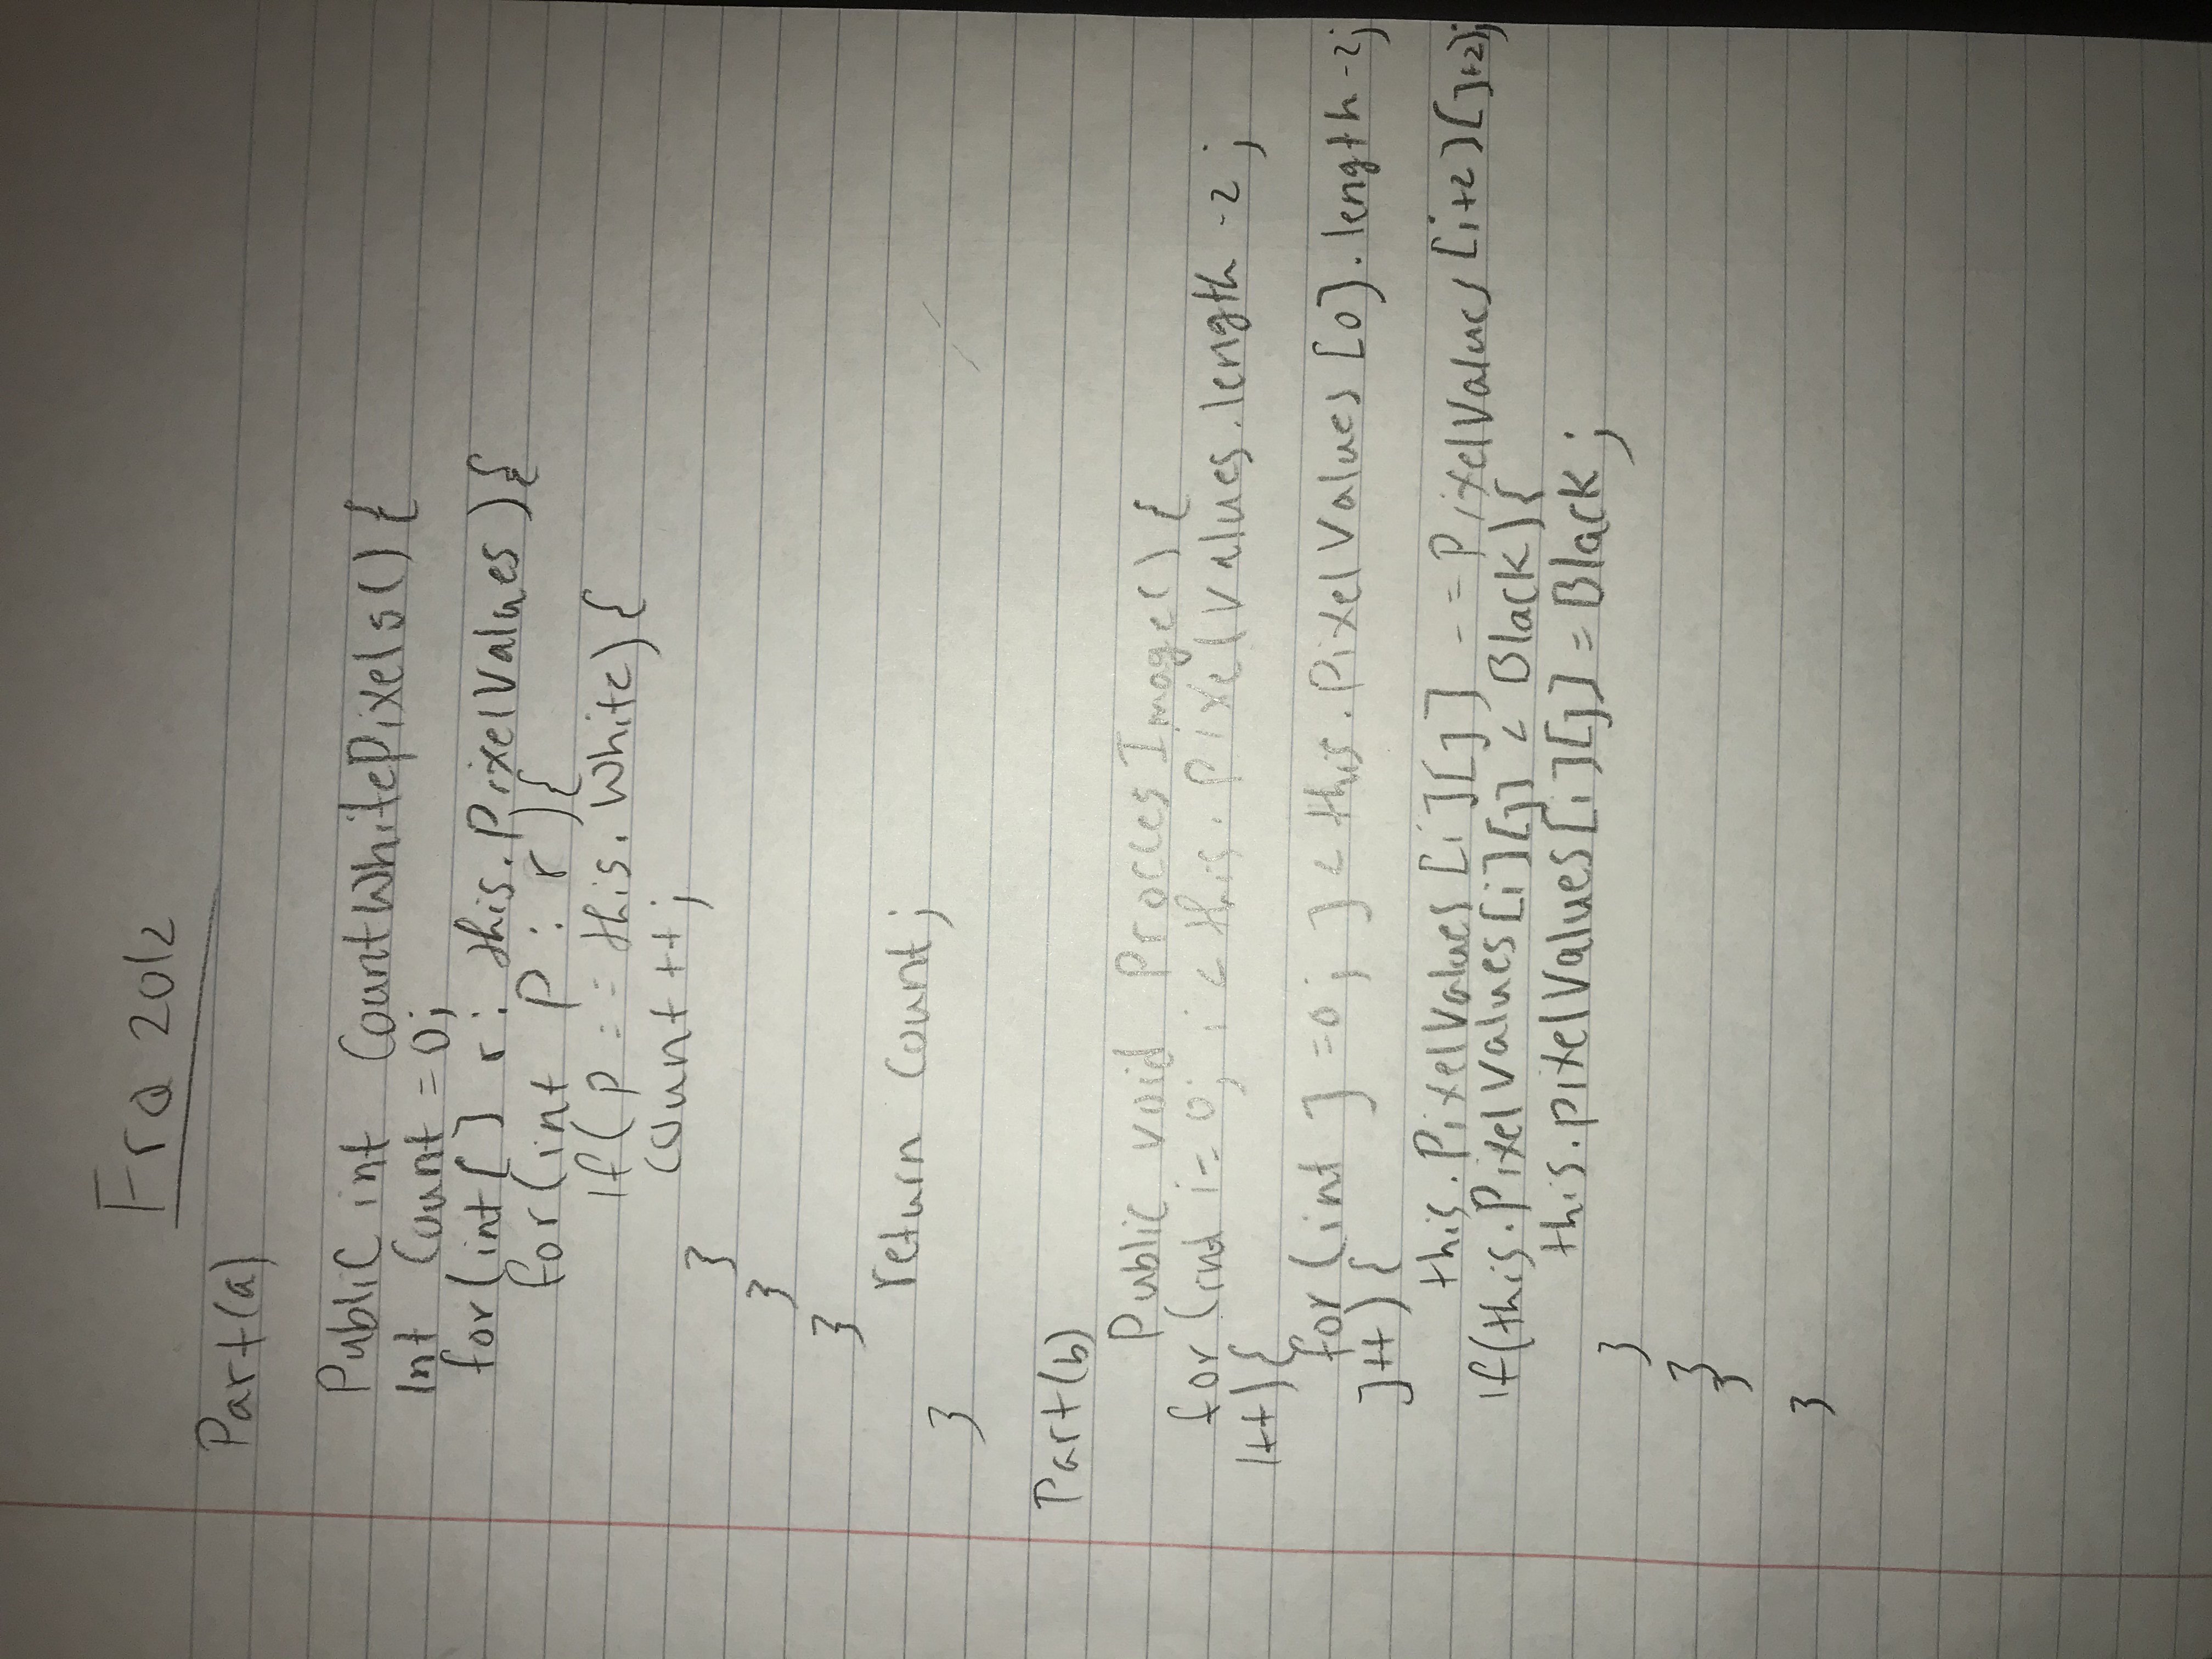 FrQ 2012
Part(a)
Public int CountWhitePixels() {
Int Count = 0;
for(int[] r : this.PixelValues){
for(int P : r){
If(p == this.White){
count++;
}
}
}
return Count;
}
Part(b)
Public void ProccesImage() {
for (int i = 0; i < this.PixelValues.length -2;
i++){
for (int J =0; J < this.PixelValues [0].length -2;
J++) {
this.PixelValues [i][j] -= PixelValues [i+2][J+2];
If(this.Pixel Values[i][j] < Black){
this.pixelValues[i][j] = Black;
}
}
}
}